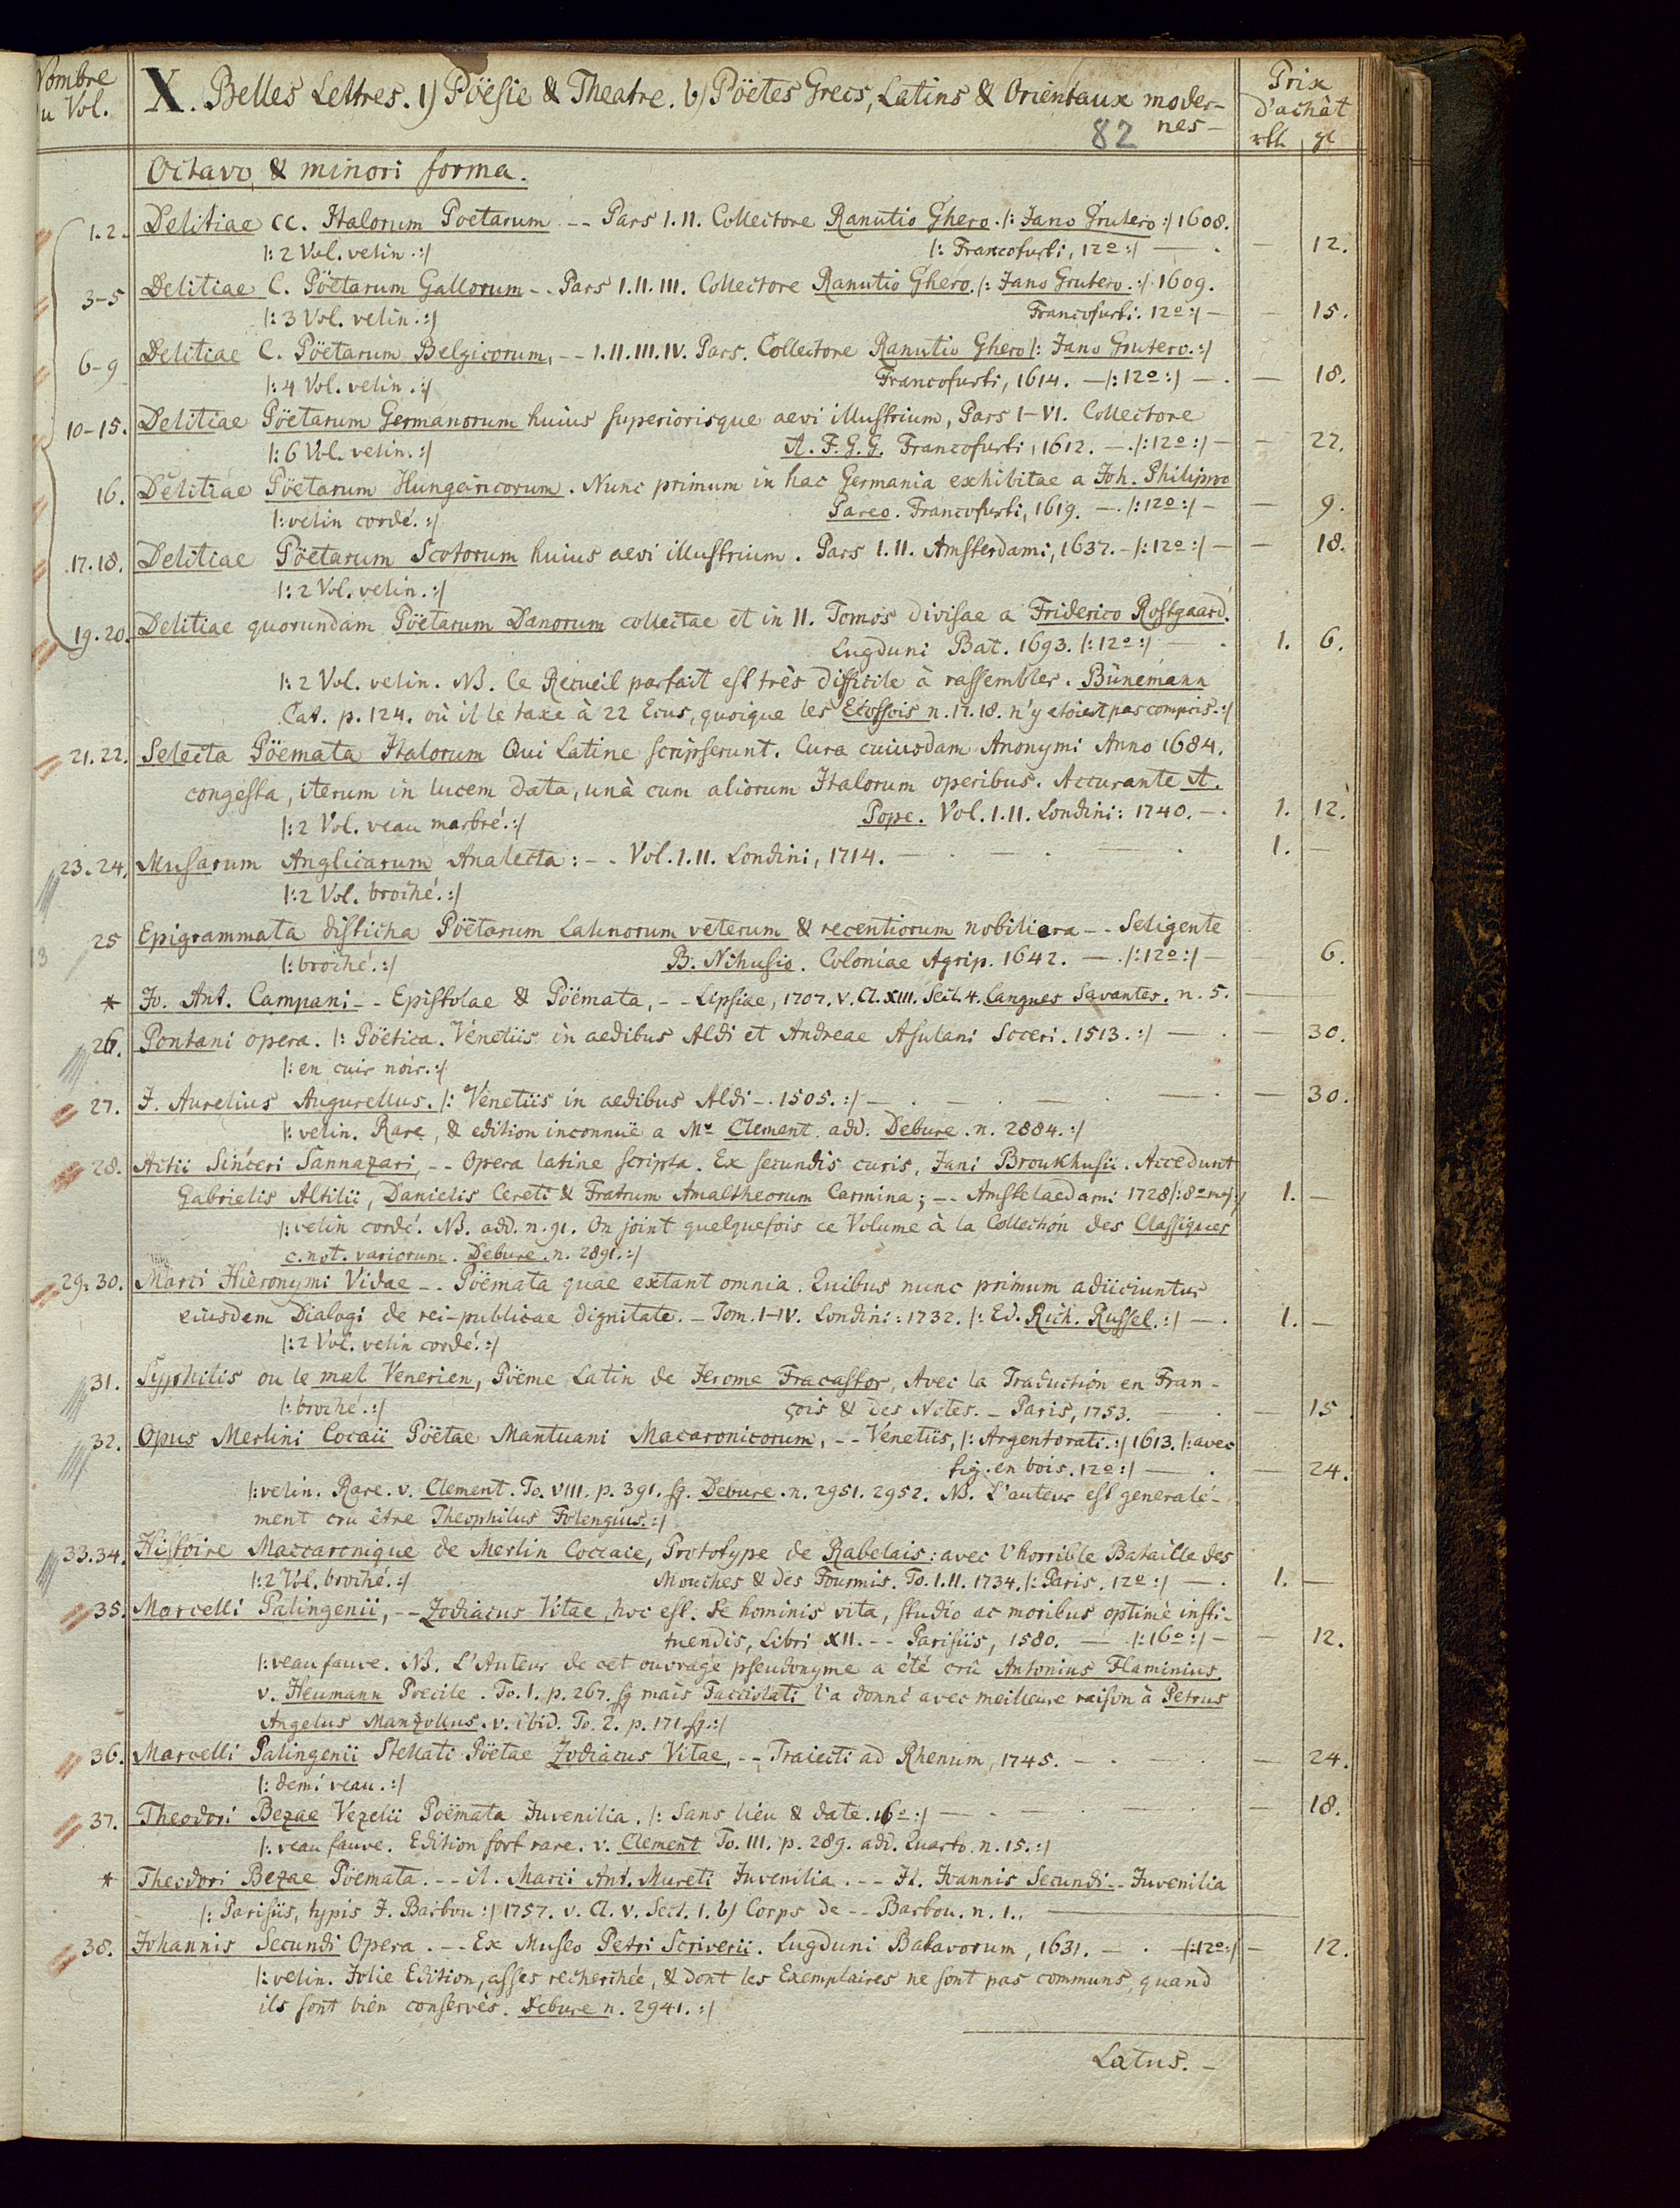 Nombre
du Vol.
X. Belles Lettres. 1) Pöësie & Theatre. b) Pöetes Grecs, Latins & Orientaux moder-
nes-
82
Prix
d'achât
rth gl
Octavo & minori forma.
1.2. Delitiae CC. Italorum Poetarum -- Pars I.II. Collectore Ranutio Ghero. /: Jano Grutero :/ 1608.
/: 2 Vol. velin. :/ /: Francofurti, 12º :/ — . — 12.
3-5 Delitiae C. Pöetarum Gallorum -- Pars I.II.III. Collectore Ranutio Ghero. /: Jano Grutero. :/ 1609.
/: 3 Vol. velin. :/ Francofurti. 12º :/ — — 15.
6-9 Delitiae C. Pöetarum Belgicorum, -- I.II.III.IV. Pars. Collectore Ranutio Ghero /: Jano Grutero. :/
/: 4 Vol. velin. :/ Francofurti, 1614. — /: 12º :/ — . — 18.
10-15. Delitiae Pöetarum Germanorum huius superiorisque aevi illustrium, Pars I-VI. Collectore
/: 6 Vol. velin. :/ A. F. G. G. Francofurti, 1612. — . /: 12º :/ — — 22.
16. Delitiae Pöetarum Hungaricorum. Nunc primum in hac Germania exhibitae a Joh. Philippo
/: velin cordé. :/ Pareo. Francofurti, 1619. — . /: 12º :/ — — 9.
17.18. Delitiae Pöetarum Scotorum huius aevi illustrium. Pars I.II. Amsterdami, 1637. — /: 12º :/ — — 18.
/: 2 Vol. velin. :/
19.20. Delitiae quorundam Pöetarum Danorum collectae et in II. Tomos divisae a Friderico Rostgaard.
Lugduni Bat. 1693. /: 12º :/ — . 1. 6.
/: 2 Vol. velin. NB. le Recueil parfait est très difficile à rassembler. Bünemann
Cat. p. 124. où il le taxe à 22 Ecus, quoique les Ecossois n. 17. 18. n'y etoient pas compris. :/
21.22. Selecta Pöemata Italorum Qui Latine scripserunt. Cura cuiusdam Anonymi Anno 1684.
congesta, iterum in lucem data, unà cum aliorum Italorum operibus. Accurante A.
/: 2 Vol. veau marbré. :/ Pope. Vol. I.II. Londini: 1740. — . 1. 12.
23.24. Musarum Anglicarum Analecta: -- Vol. I.II. Londini, 1714. — . — . — . 1. —
/: 2 Vol. broché. :/
25 Epigrammata disticha Pöetarum Latinorum veterum & recentiorum nobiliora -- Seligente
/: broché. :/ B. Nihusio. Coloniae Agrip. 1642. — . /: 12º :/ — — 6.
* Jo. Ant. Campani -- Epistolae & Pöemata, -- Lipsiae, 1707. v. Cl. XIII. Sect. 4. Langues Savantes. n. 5. —
26. Pontani opera. /: Pöëtica. Venetiis in aedibus Aldi et Andreae Asulani Soceri. 1513. :/ — . — 30.
/: en cuir noir. :/
27. J. Aurelius Augurellus. /: Venetiis in aedibus Aldi -. 1505. :/ — . — . — . — . — 30.
/: velin. Rare, & edition inconnuë a Mr Clement. add. Debure. n. 2884. :/
28. Actii Sinceri Sannazari, -- Opera latine scripta. Ex secundis curis, Jani Broukhusii. Accedunt
Gabrielis Altilii, Danielis Cereti & Fratrum Amaltheorum Carmina; -- Amstelaedami 1728 /: 8º maj :/ 1. —
/: velin cordé. NB. add. n. 91. On joint quelquefois ce Volume à la Collection des Classiques
c. not. variorum. Debure. n. 2891. :/
29.30. Marci Hieronymi Vidae -- Pöemata quae extant omnia. Quibus nunc primum adiiciuntur
eiusdem Dialogi de rei-publicae dignitate. — Tom. I-IV. Londini: 1732. /: Ed. Rich. Russel. :/ — . 1. —
/: 2 Vol. velin cordé. :/
31. Syphilis ou le mal Venerien, Pöeme Latin de Jerome Fracastor, Avec la Traduction en Fran-
/: broché. :/ çois & des Notes. — Paris, 1753. — . — 15
32. Opus Merlini Cocaii Pöetae Mantuani Macaronicorum, -- Venetiis, /: Argentorati. :/ 1613. /: avec
fig. en bois. 12º :/ — . — 24.
/: velin. Rare. v. Clement. To. VIII. p. 391. sq. Debure. n. 2951. 2952. NB. L'auteur est generalé-
ment crû être Theophilus Folengius. :/
33.34. Histoire Maccaronique de Merlin Coccaie, Prototype de Rabelais: avec l'horrible Bataille des
/: 2 Vol. broché. :/ Mouches & des Fourmis. To. I.II. 1734. /: Paris. 12º :/ — . 1. —
35. Marcelli Palingenii, -- Zodiacus Vitae, hoc est. de hominis vita, studio ac moribus optimè insti-
tuendis, Libri XII. -- Parisiis, 1580. — . /: 16º :/ — — 12.
/: veau fauve. NB. L'Auteur de cet ouvrage pseudonyme a été crû Antonius Flaminius.
v. Heumann Poecile. To. 1. p. 267. sq mais Facciolati l'a donné avec meilleure raison à Petrus
Angelus Manzollus. v. ibid. To. 2. p. 171. sq. :/
36. Marcelli Palingenii Stellati Pöetae Zodiacus Vitae, -- Traiecti ad Rhenum, 1745. — . — . — 24.
/: demi veau. :/
37. Theodori Bezae Vezelii Poëmata Juvenilia. /: Sans lieu & date. 16º :/ — . — . — — 18.
/: veau fauve. Edition fort rare. v. Clement To. III. p. 289. add. Quarto. n. 15. :/
* Theodori Bezae Pöemata. -- it. Marci Ant. Mureti Juvenilia. -- It. Joannis Secundi -- Juvenilia
/: Parisiis, typis J. Barbou :/ 1757. v. Cl. V. Sect. 1. b) Corps de -- Barbou. n. 1.. —
38. Johannis Secundi Opera. -- Ex Museo Petri Scriverii. Lugduni Batavorum, 1631. — . /: 12º :/ — 12.
/: velin. Jolie Edition, asses recherchée, & dont les Exemplaires ne sont pas communs, quand
ils sont bien conservés. Debure n. 2941. :/
Latus. —